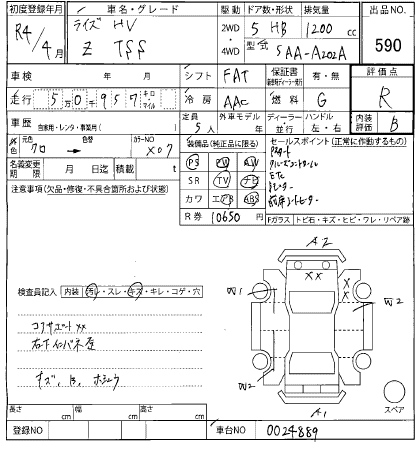 初度登録年月
車名・グレード
駆動
ドア数・形状
排気量
出品NO.
R4/4月
ライズ HV
Z
2WD
・
4WD
5 HB
1200 cc
型式
5AA-A202A
590
車検 年 月
シフト FAT
保証書 有・無
評価点
R
走行 5万0千957 キロ マイル
冷房 AAC
燃料 G
車歴
自家用・レンタ・事業用( )
定員
5人
外車モデル
年
ディーラー
並行
ハンドル
左・右
内装
評価
B
色
元色
クロ →
色替
カラーNO
X07
装備品(純正品に限る)
PS PW AW
SR TV ナビ
カワ エアB ABS
R券 10650 円
セールスポイント(正常に作動するもの)
クルーズコントロール
ETC
名義変更
期限
月 日迄
積載 t
注意事項(欠品・修復・不具合箇所および状態)
Fガラス トビ石・キズ・ヒビ・ワレ・リペア跡
A2
XX
X
X
W1
W2
W2
A1
スペア
検査員記入
内装
汚レ・スレ・キズ・キレ・コゲ・穴
コアサポートXX
長さ cm
幅 cm
高さ cm
登録NO
車台NO 0024889